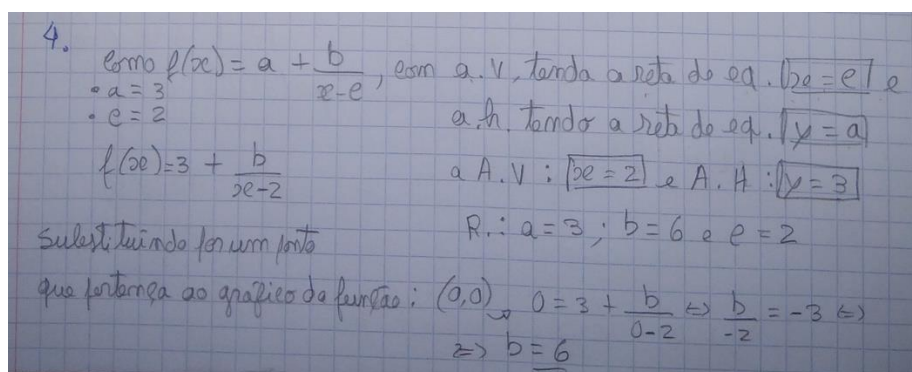 4.
Como f(x) = a + b/(x-c), com a.V, tendo a reta de eq. x = c e
• a = 3
• c = 2
a.h. tendo a reta de eq. y = a
f(x) = 3 + b/(x-2)
a A.V : x = 2 e A.H : y = 3
R.: a = 3 ; b = 6 e c = 2
Substituindo por um ponto
que pertença ao gráfico da função : (0,0) → 0 = 3 + b/(0-2) ⇔ b/-2 = -3 ⇔
⇔ b = 6